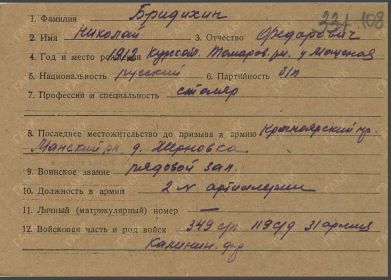 331 108
1. Фамилия Бридихин
2. Имя Николай 3. Отчество Федорович
4. Год и место рождения 1912 Курской. Томаров. рн.
5. Национальность русский 6. Партийность б/п
7. Профессия и специальность столяр
8. Последнее местожительство до призыва в армию Красноярский кр.
Манский рн д. Жерновка
9. Воинское звание рядовой зап.
10. Должность в армии артиллерии
11. Личный (матрикулярный) номер —
12. Войсковая часть и род войск 349 с/п 119 с/д 31 армия
Калинин. фр